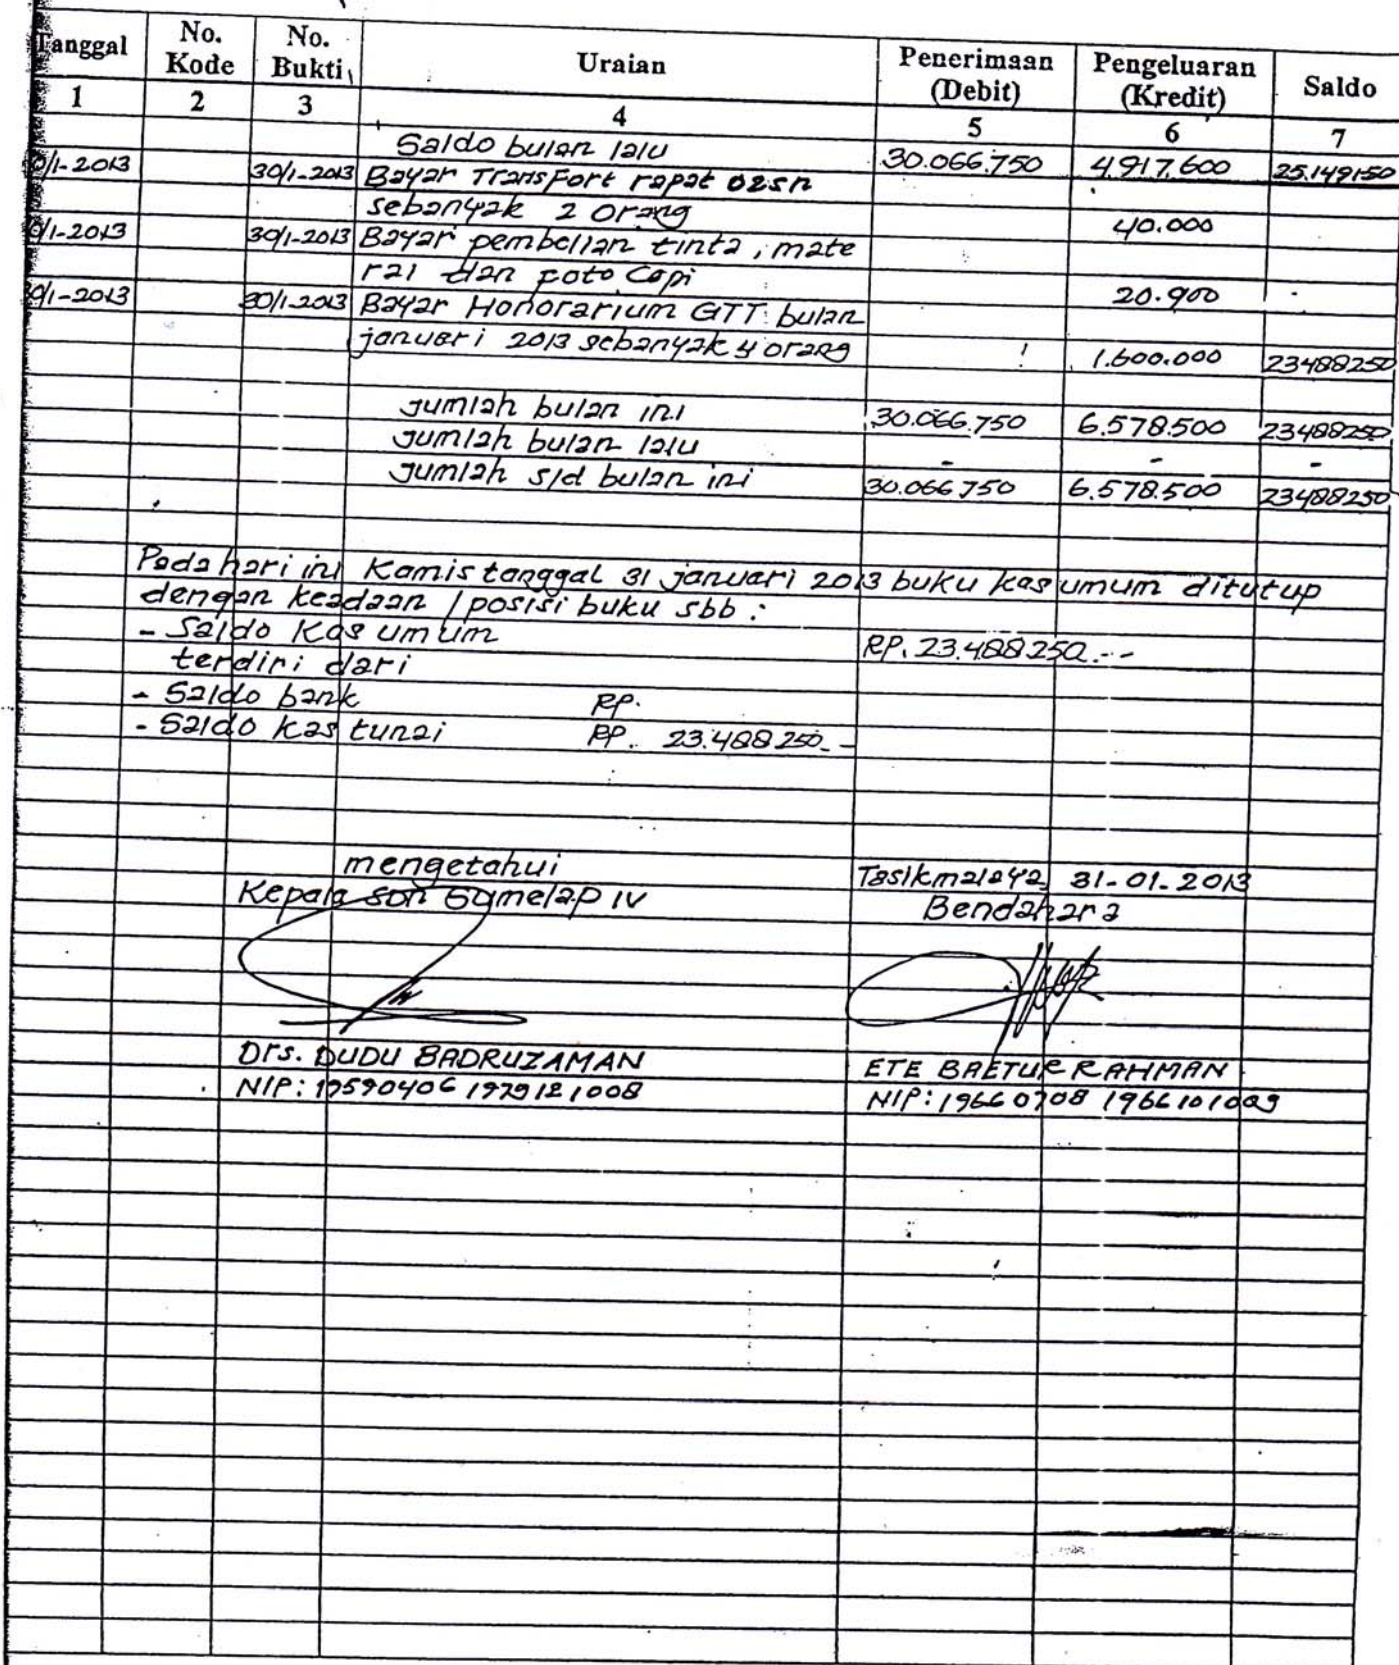 Tanggal No. Kode No. Bukti Uraian Penerimaan (Debit) Pengeluaran (Kredit) Saldo
1 2 3 4 5 6 7
Saldo bulan lalu 30.066.750 4.917.600 25.149.150
0/1-2013 30/1-2013 Bayar Transfort rapat O2SN
sebanyak 2 orang 40.000
0/1-2013 30/1-2013 Bayar pembelian tinta, mate
rai dan foto copi 20.900
0/1-2013 30/1-2013 Bayar Honorarium GTT bulan
januari 2013 sebanyak 4 orang 1.600.000 23488250
jumlah bulan ini 30.066.750 6.578.500 23488250
jumlah bulan lalu - - -
jumlah s/d bulan ini 30.066.750 6.578.500 23488250
Pada hari ini Kamis tanggal 31 januari 2013 buku kas umum ditutup
dengan keadaan / posisi buku sbb :
- Saldo Kas umum RP. 23.488.250.--
terdiri dari
- Saldo bank RP.
- Saldo kas tunai RP. 23.488.250.-
mengetahui Tasikmalaya, 31-01-2013
Kepala SDN IV Bendahara
Drs. DUDU BADRUZAMAN ETE BAETUR RAHMAN
NIP: 19590406 197912 1008 NIP: 19660708 196610 1009